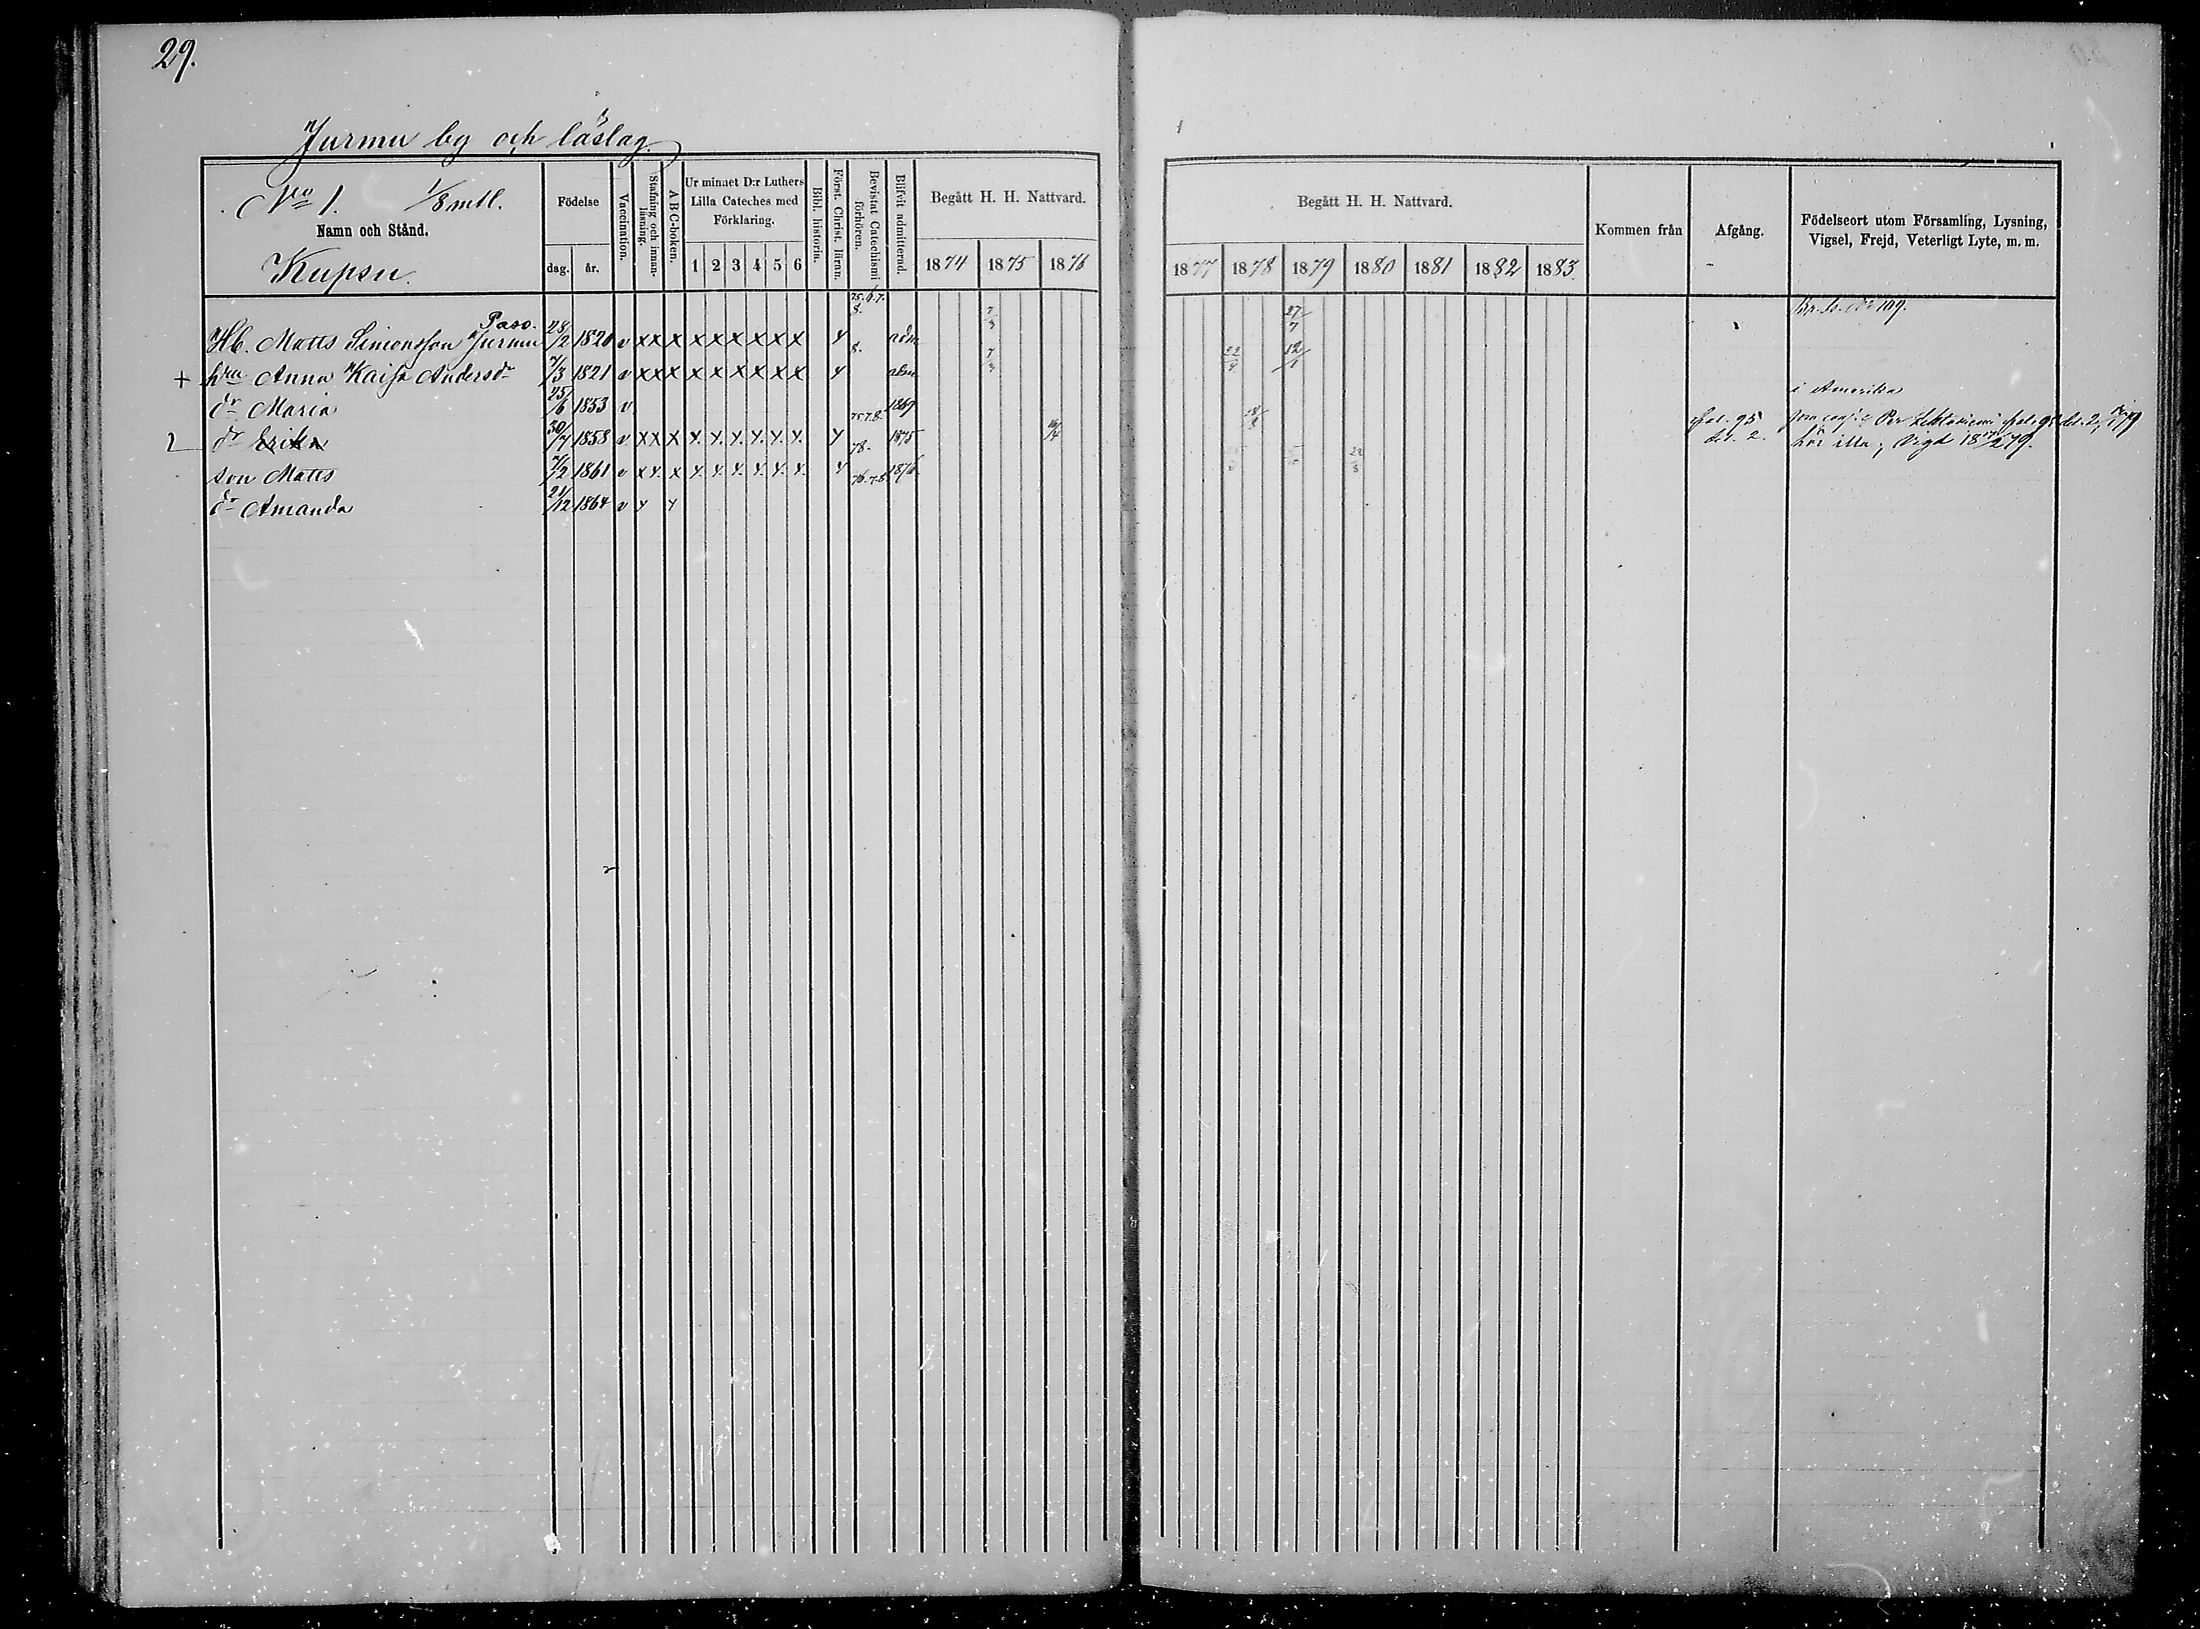 29.
Jurmu by och läslag.
No 1. 1/8 mtl.
Namn och Stånd.
Kupsu.
Födelse
dag. år.
Vaccination.
Stafning och innanläsning.
A B C-boken.
Ur minnet D:r Luthers Lilla Cateches med Förklaring.
1 2 3 4 5 6
Bibl. historia.
Först. Christ. läran.
Bevistat Catechismi förhören.
Blifvit admitterad.
Begått H. H. Nattvard.
1874 1875 1876
Begått H. H. Nattvard.
1877 1878 1879 1880 1881 1882 1883
Kommen från
Afgång.
Födelseort utom Församling, Lysning, Vigsel, Frejd, Veterligt Lyte, m. m.
75. 6. 7. 8.
Paso.
Hb. Matts Simonsson Jurmu 28/2 1820 v x x x x x x x x x 4 adm 7/3 27/7 No 109.
+ hru Anna Kaisa Andersdr 7/3 1821 v x x x x x x x x x 4 8. adm 7/3 22/9 12/1
dr Maria 25/6 1853 v 1869 i Amerika
dr Erika 30/7 1858 v x x x 4. 4. 4. 4. 4. 4. 4 75. 7. 8. 1875 fol. 95 del. 2. hör illa; Vigd
son Matts 7/2 1861 v x 4. x 4. 4. 4. 4. 4. 4. 4 78. 1876
dr Amanda 21/12 1864 v 4 4 76. 7. 8.